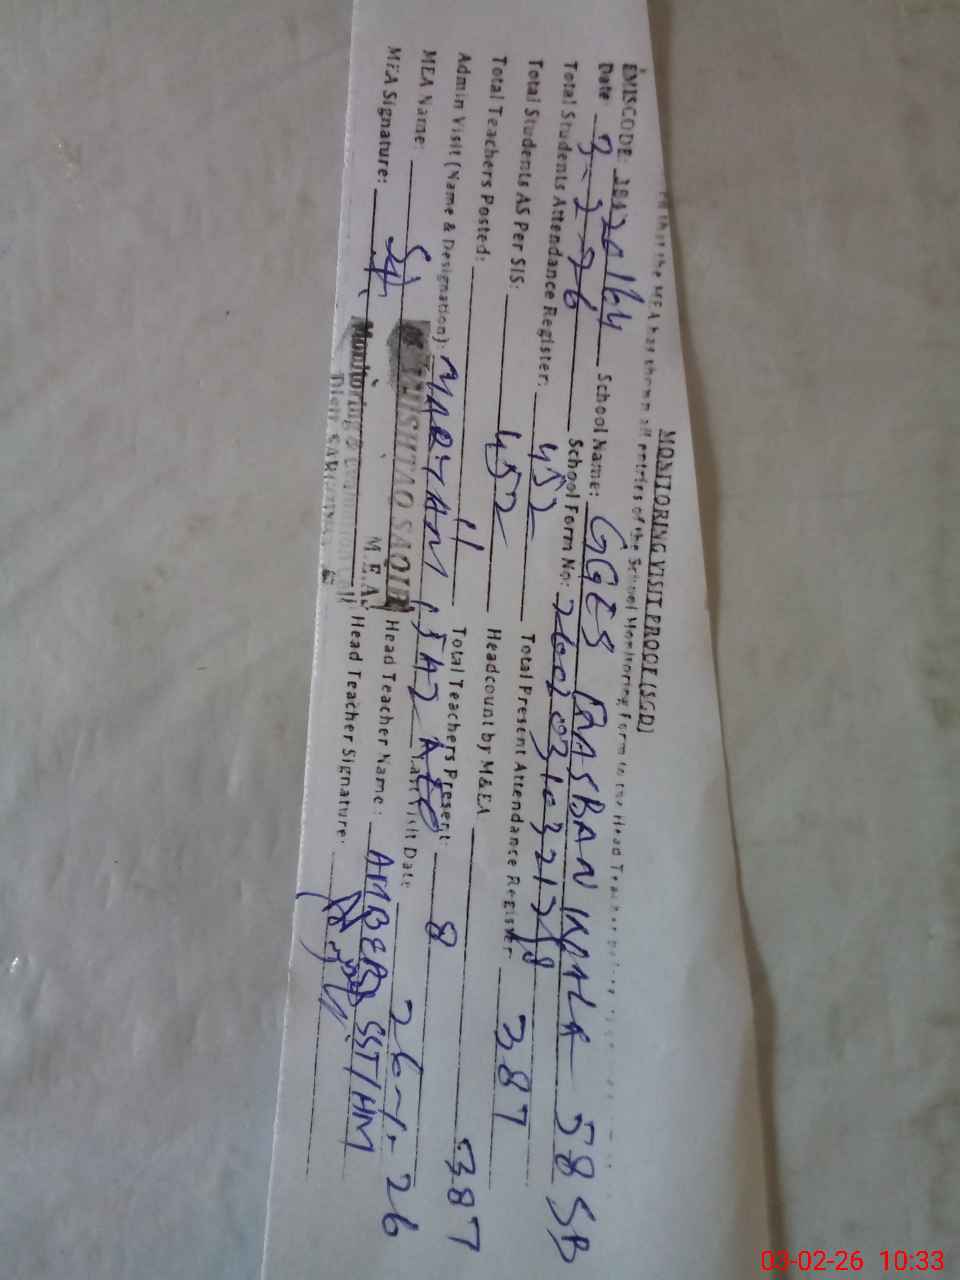 MONITORING VISIT PROOF (SGD)
that the MEA has shown all entries of the School Monitoring Form to the Head Teacher
EMISCODE: School Name: GGES RASBAN WALA 58 SB
Date 3-2-26 School Form No:
Total Students Attendance Register: 452 Total Present Attendance Register 387
Total Students AS Per SIS: 452 Headcount by M&EA 387
Total Teachers Posted: 11 Total Teachers Present: 8
Admin Visit (Name & Designation): MARYAM IJAZ AEO Last Visit Date 26-1-26
MEA Name: Head Teacher Name: AMBER SST/HM
MEA Signature: Head Teacher Signature:
ISHTAQ SAQIB
M.E.A.
Monitoring &
03-02-26 10:33